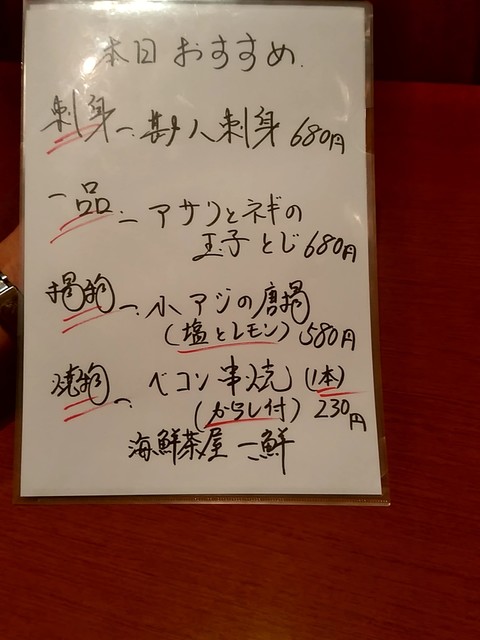 本日おすすめ.
刺身一、勘八刺身 680円
一品一、アサリとネギの
玉子とじ 680円
揚物一、小アジの唐揚
(塩とレモン) 580円
焼物一、ベーコン串焼 (1本)
(からし付) 230円
海鮮茶屋 一鮮